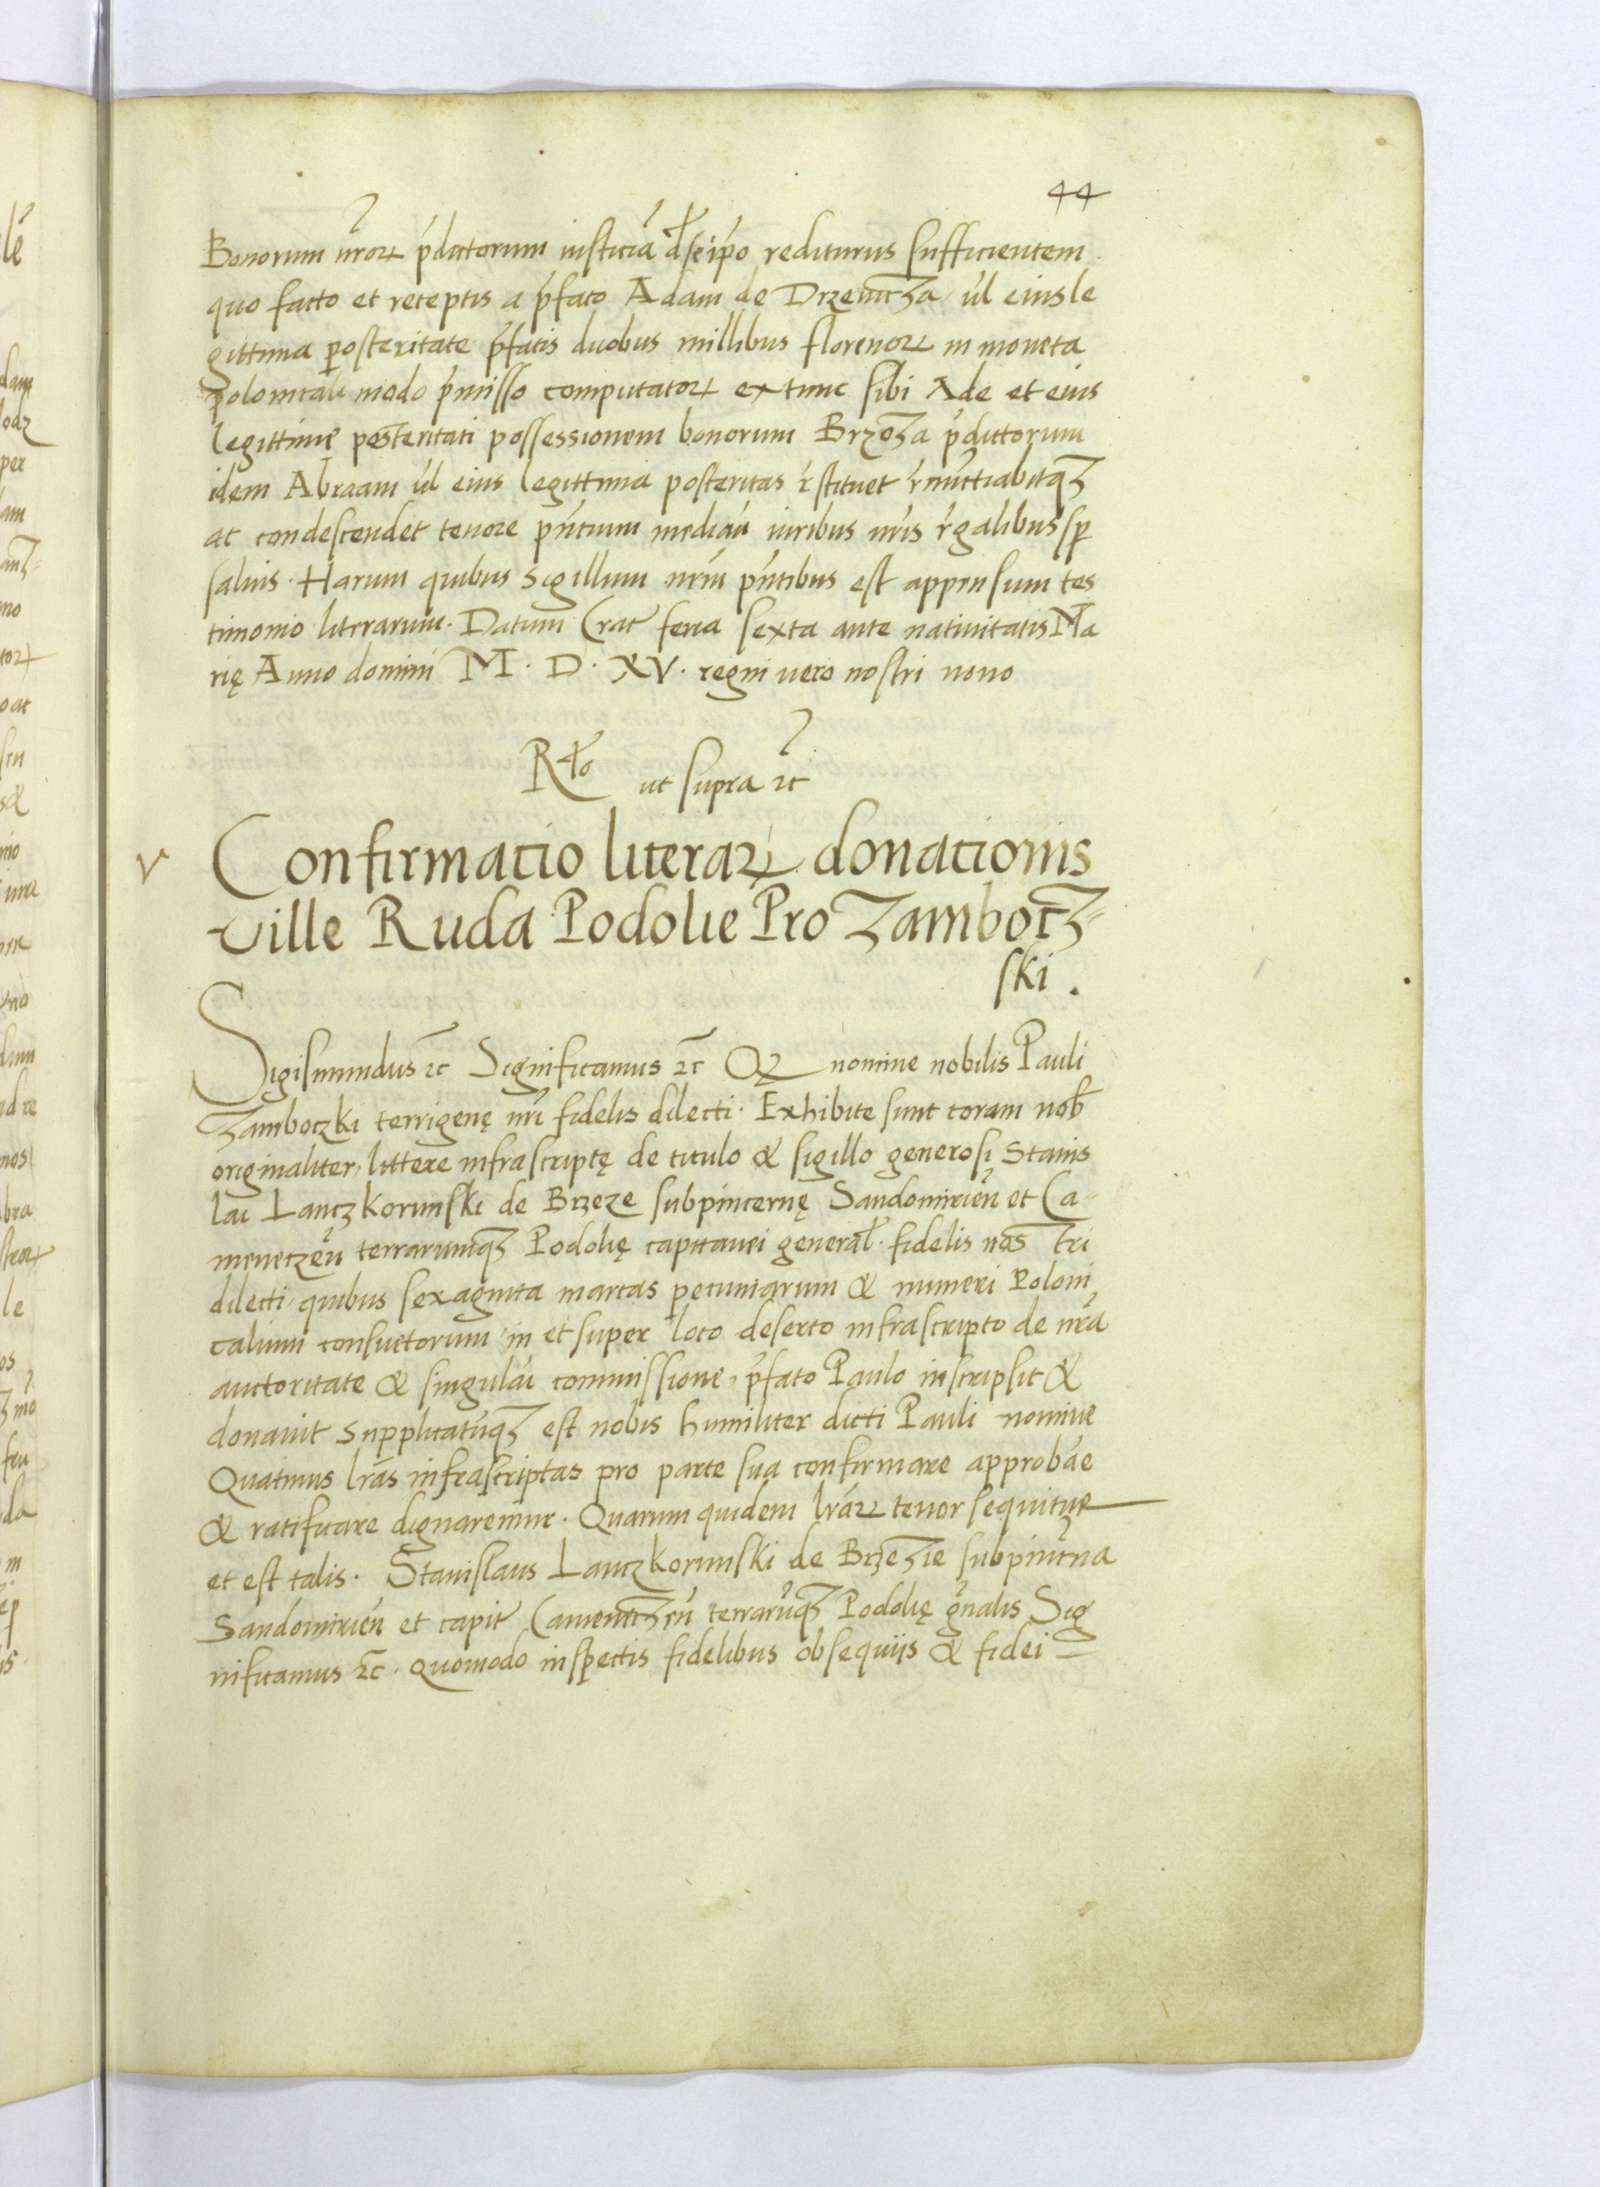 44
Bonorum nr̃oꝝ p̃dictorum iusticiã de seip̃o rediturus sufficientem
quo facto et receptis a p̃fato Adam de Drzewicza ul̃ eius le
gittima posteritate p̃fatis duobus millibus florenoꝝ in moneta
polonicali modo p̃misso computatoꝝ extunc sibi Ade et eius
legittime posteritati possessionem bonorum Brzoza p̃dictorum
idem Abraam ul̃ eius legittima posteritas r̃stituet
ac condescendet tenore p̃ntium mediañ iuribus nr̃is r̃galibus sp̃
saluis. Harum quibus Sigillum nr̃m p̃ntibus est appensum tes
timonio literarum. Datum Crac̃ feria sexta ante natiuitatis Ma
rię Anno domini M. D. XV. regni vero nostri nono
R̃lo ut supra ⁊c̃
v Confirmacio literaꝝ donacionis
ville Ruda Podolie Pro Zambocz=
ski.
Sigismundus ⁊c̃ Significamus ⁊c̃ Qꝫ nomine nobilis Pauli
Zamboczki terrigenę nr̃i fidelis dilecti. Exhibite sunt coram nob̃
originaliter littere infrascriptę de titulo & sigillo generosi Stanis
lai Lanczkorunski de Brzeze subpincernę Sandomirieñ et Ca=
meneczeñ terrarumqꝫ Podolię capitanei general̃. fidelis nos tri
dilecti, quibus sexaginta marcas pecuniarum & numeri Poloni
calium consuetorum in et super loco deserto infrascripto de nr̃a
auctoritate & singulãi commissione, p̃fato Paulo inscripsit &
donauit Supplicatũqꝫ est nobis humiliter dicti Pauli nomine
Quatinus lr̃as infrascriptas pro parte sua confirmare approbãe
& ratificare dignaremur. Quarum quidem lr̃aꝝ tenor sequitur
et est talis. Stanislaus Lanczkorunski de Brzezie subpincr̃na
Sandomirieñ et capit̃ Camenczeñ terrarũqꝫ Podolię gñalis Sig
nificamus ⁊c̃. quomodo inspectis fidelibus obsequijs & fidei